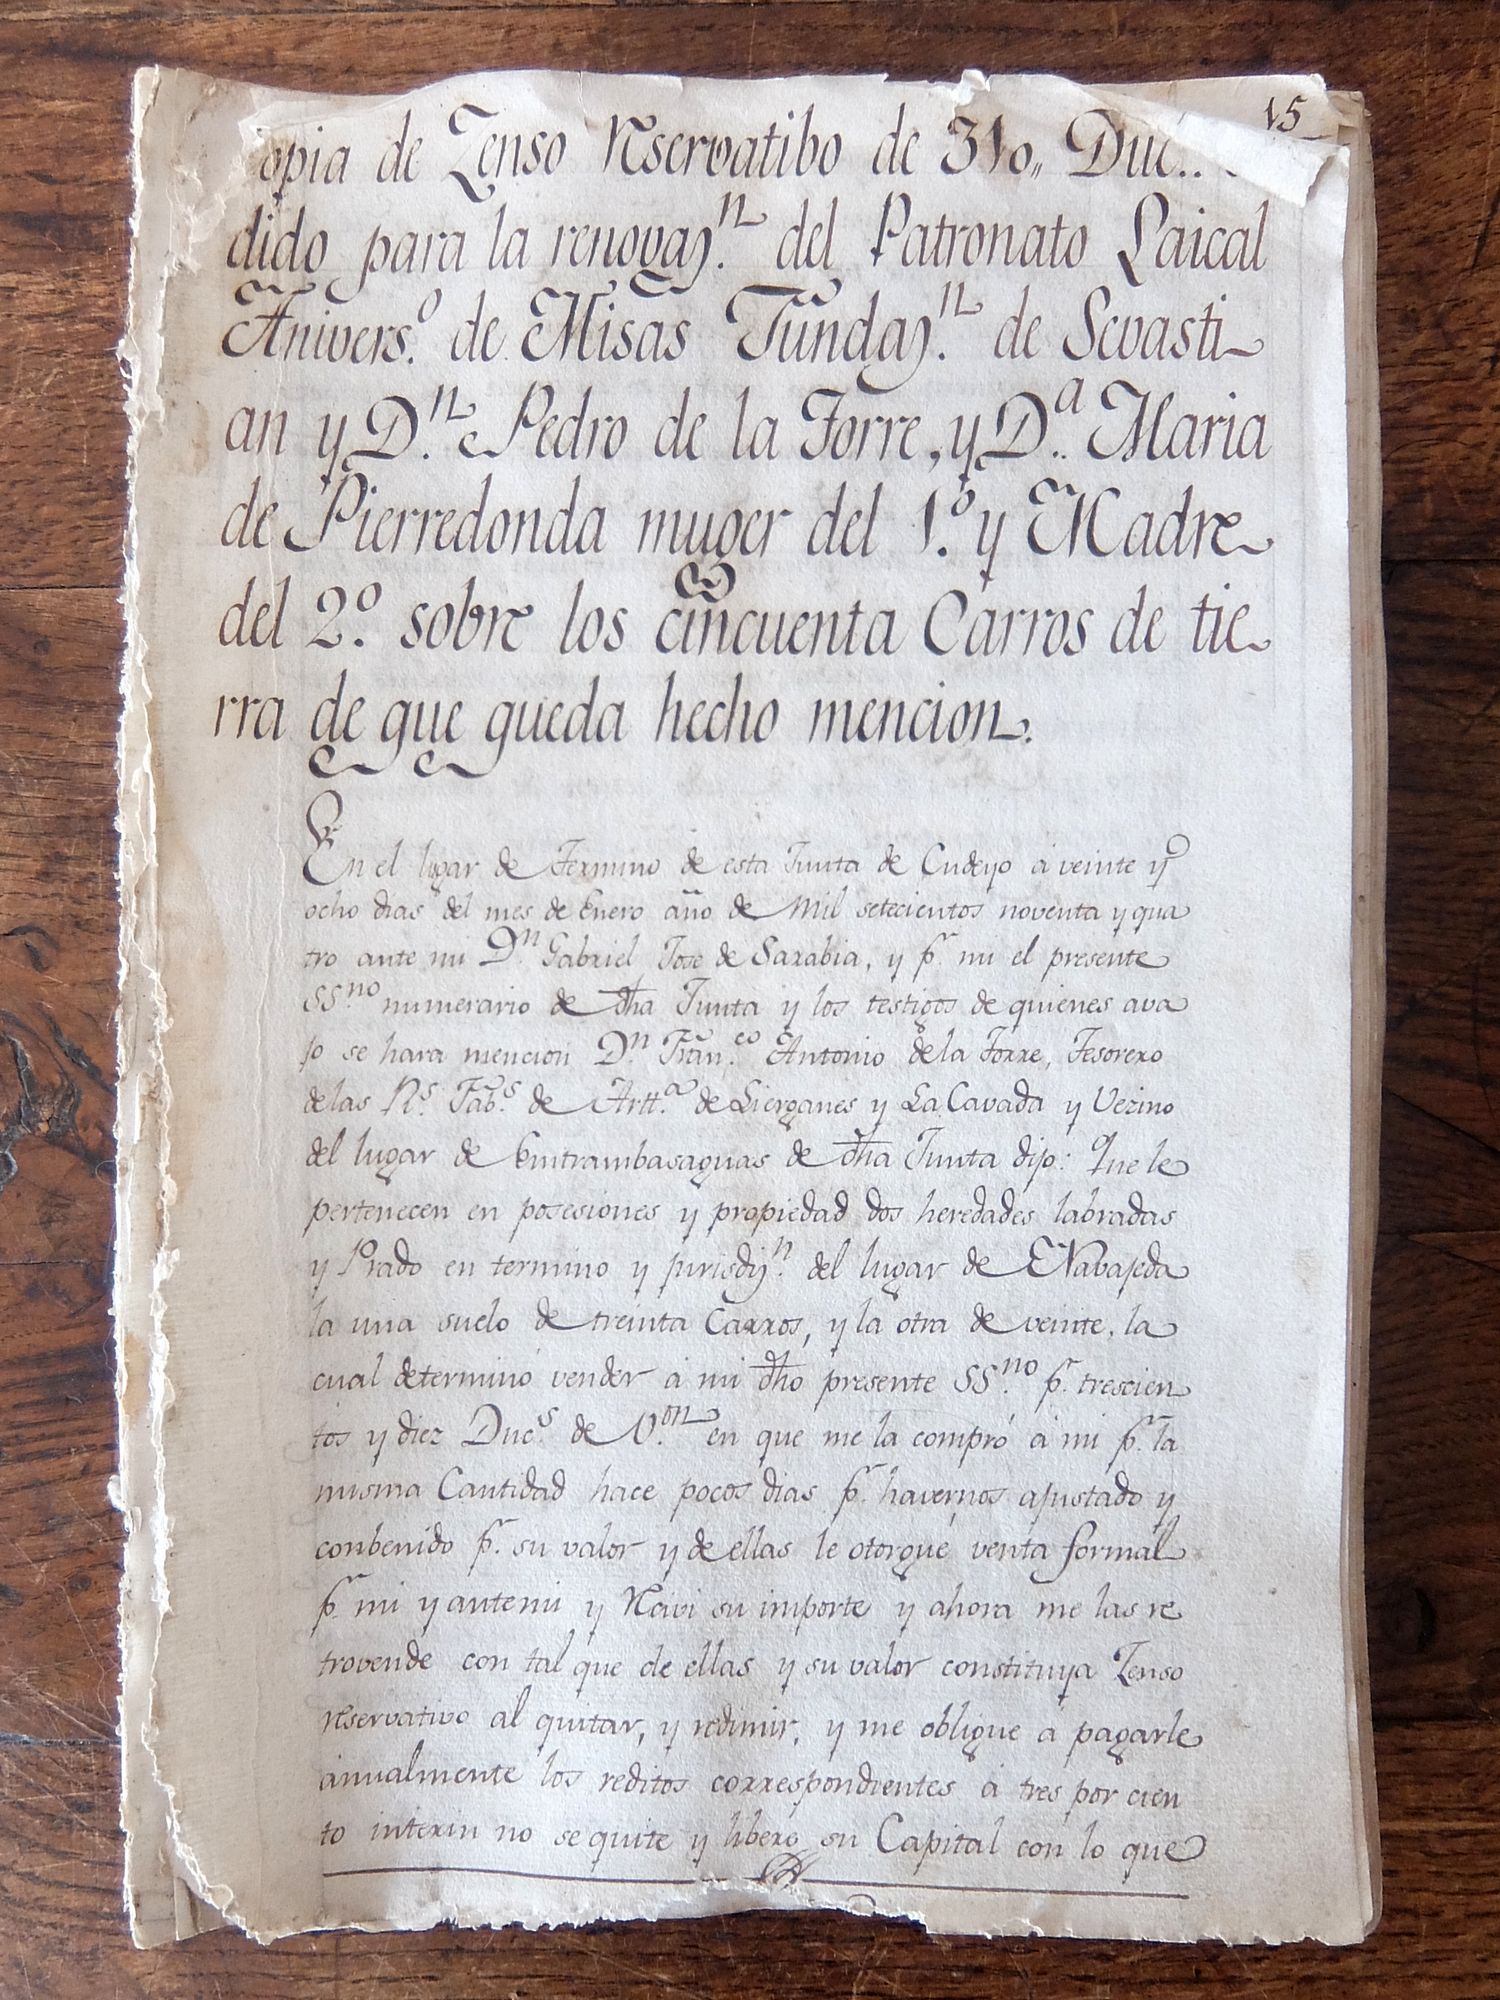 15
opia de Zenso Reservatibo de 310,, Duc..
dido para la renovaz.ⁿ del Patronato Laical
Anivers.º de Misas Fundaz.ⁿ de Sevasti-
an y D.ⁿ Pedro de la Torre, y D.ª Maria
de Pierredonda muger del 1.º y Madre
del 2.º sobre los cincuenta Carros de tie-
rra de que queda hecho mencion.
En el lugar de Termino de esta Junta de Cudeyo á veinte y
ocho dias del mes de Enero año de Mil setecientos noventa y qua
tro ante mi D.ⁿ Gabriel Jose de Sarabia, y p.ʳ mi el presente
SS.ⁿᵒ numerario de dha Junta y los testigos de quienes ava
jo se hara mencion D.ⁿ Fran.ᶜᵒ Antonio de la Torre, Tesorero
de las R.ˢ Fab.ˢ de Artt.ª de Lierganes y La Cavada y Vezino
del lugar de Entrambasaguas de dha Junta dijo: Que le
pertenecen en posesiones y propiedad dos heredades labradas
y Prado en termino y jurisdiz.ⁿ del lugar de Navajeda
la una suelo de treinta Carros, y la otra de veinte, la
cual determinó vender á mi dho presente SS.ⁿᵒ p.ʳ trescien
tos y diez Duc.ˢ de V.ᵒⁿ en que me la compró á mi p.ʳ la
misma Cantidad hace pocos dias p.ʳ havernos ajustado y
conbenido p.ʳ su valor y de ellas le otorgué venta formal
p.ʳ mi y ante mi y Recivi su importe y ahora me las re
trovende con tal que de ellas y su valor constituya Zenso
reservativo al quitar, y redimir, y me obligue á pagarle
anualmente los reditos correspondientes á tres por cien
to interin no se quite y libero su Capital con lo que